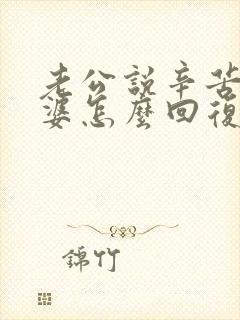 老公說辛苦
婆怎麼回復
錦竹